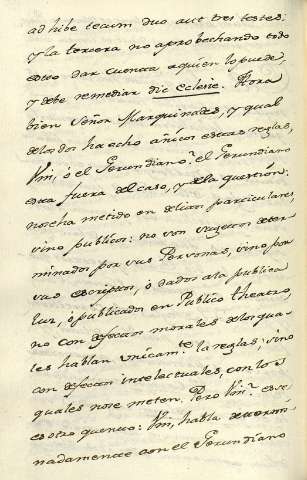 adhibe tecum duo aut tres testes:
y la tercera no aprobechando todo
esto dar cuenta a quien lo puede,
y debe remediar dic eclesie. Aora
bien Señor Marquinades, y qual
de los dos ha echo añicos estas reglas,
Vm, ó el Gerundiano? el Gerundiano
esta fuera del caso, y de la question:
no se ha metido en delitos particulares
sino publicos: no con sugetos deter
minados por sus Personas, sino por
sus escriptos, ó dados a la publica
luz, ó publicados en Publico theatro,
no con defectos morales de los qua
les hablan unicam.te las reglas; sino
con defectos intelectuales, con los
quales no se meten. Pero Vm.
es otro quento: Vm, habla determi
nadamente con el Gerundiano